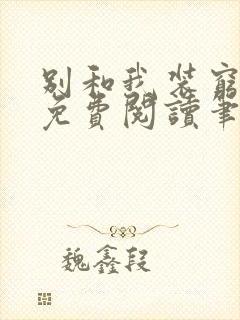 别和我装穷
免费阅讀筆
魏鑫段